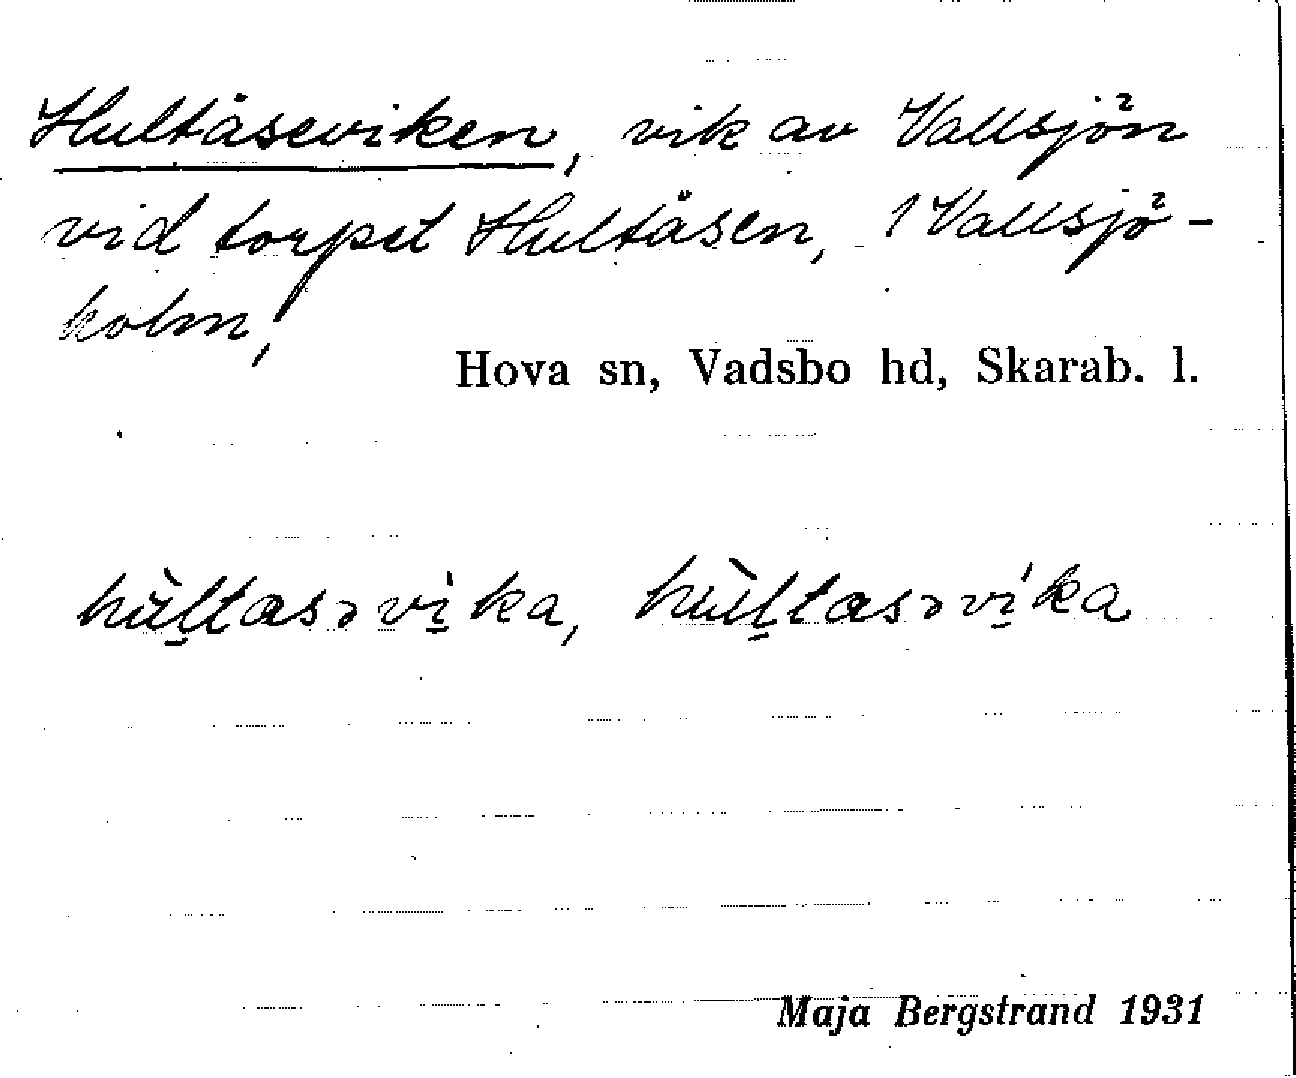 Hultåseviken, vik av Vallsjön
vid torpet Hultåsen, 1 Vallsjö-
holm,
Hova sn, Vadsbo hd, Skarab. l.
hù̈l̠tasəvi̠̍ka, hùl̠ltasəvi̠̍ka
Maja Bergstrand 1931